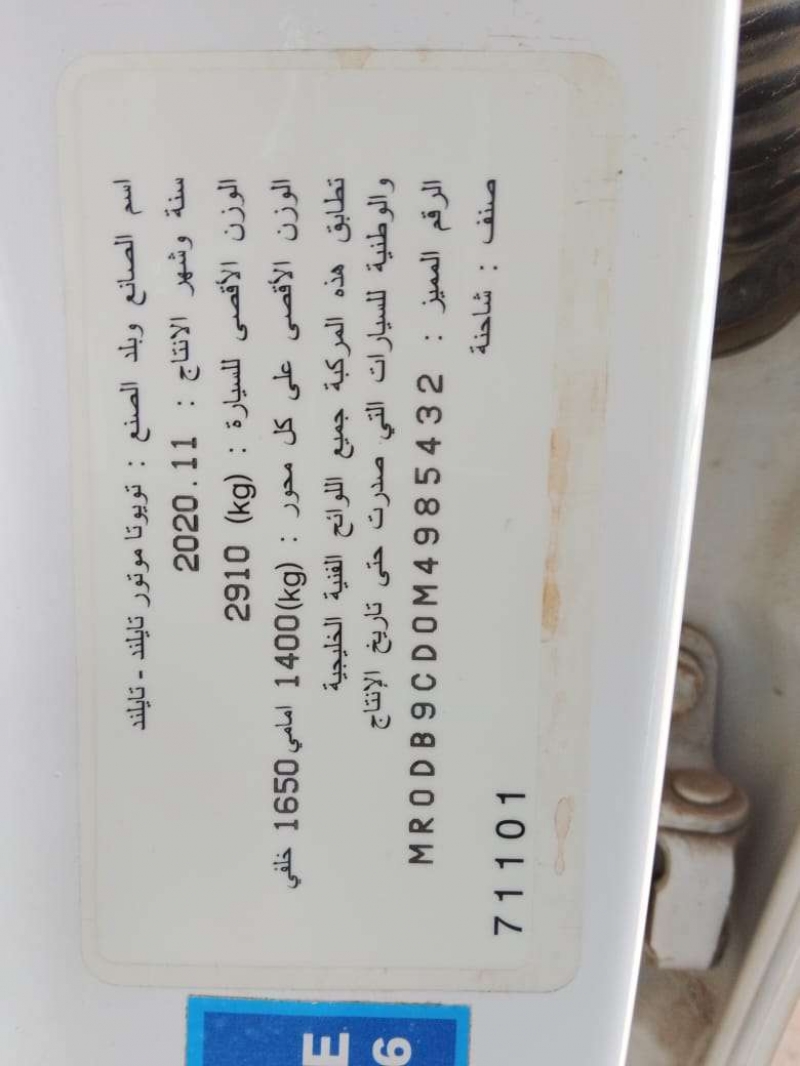 اسم الصانع وبلد الصنع : تويوتا موتور تايلند - تايلند
سنة وشهر الانتاج : 2020.11
الوزن الأقصى للسيارة : (kg) 2910
الوزن الأقصى على كل محور : (kg) 1400 امامي 1650 خلفي
تطابق هذه المركبة جميع اللوائح الفنية الخليجية
والوطنية للسيارات التي صدرت حتى تاريخ الإنتاج
الرقم المميز : MR0DB9CD0M4985432
صنف : شاحنة
71101
E
6